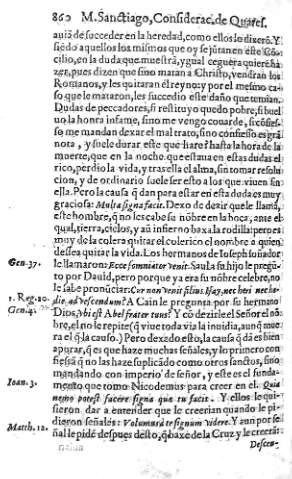 860 M. Sanctiago, Considerac. de Quares.
auiã de succeder en la heredad, como ellos lo dizerõ. Y
siẽdo aquellos los mismos que oy se jũtan en este Cõ-
cilio, en la duda que muestrã, y qual ceguera quierẽ ha
zer, pues dizen que sino matan a Christo, vendran los
Romanos, y les quitaran el reyno: y por el mesmo ca-
so que le mataron, les succedio este daño que temian.
Dudas de peccadores, si restituyo quedo pobre, si buel
uo la honra infame, sino me vengo couarde, si cõfies-
so me mandan dexar el mal trato, sino confiesso es grã
nota, y suele durar este que hare? hasta la hora de la
muerte, que en la noche que estaua en estas dudas el
rico, perdio la vida, y tras ella el alma, sin tomar resolu
cion, y de ordinario suele ser esto a los que viuen sin
ella. Pero la causa q̃ dan para estar en esta duda es muy
graciosa: Multa signa facit. Dexo de dezir que le llamã,
este hombre, q̃ no les cabe su nõbre en la boca, ante el
qual, tierra, cielos, y aũ infierno baxa la rodilla: pero es
muy de la colera quitar el colerico el nombre a quien
dessea quitar la vida. Los hermanos de Ioseph soñador
Gen. 37. le llamaron: Ecce somniator venit. Saul a su hijo le pregũ
to por Dauid, pero porque ya era su nõbre celebre, no
le sabe pronũciar: Cur non venit filius Isay, nec heri nec ho-
1. Reg. 20. die, ad vescendum? A Cain le pregunta por su hermano
Gen. 4. Dios, Vbi est Abel frater tuus? Y cõ dezirle el Señor el nõ
bre, el no le repite (q̃ viue toda via la inuidia, aunq̃ mue
ra el q̃ la causo.) Pero dexado esto, la causa q̃ dã es bien
apurar, q̃ es que haze muchas señales, y lo primero con
fiessã q̃ no las haze suplicãdo como otros sanctos, sino
mandando con imperio de señor, y este es el funda-
Ioan. 3. mento que tomo Nicodemus para creer en el. Quia
nemo potest facere signa quæ tu facis. Y ellos le qui-
sieron dar a entender que le creerian quando le pi-
Matth. 12. dieron señales: Volumus à te signum videre. Y aun por se
ñal le pidẽ despues desto, q̃ baxe de la Cruz y le creerãn:
Descen-